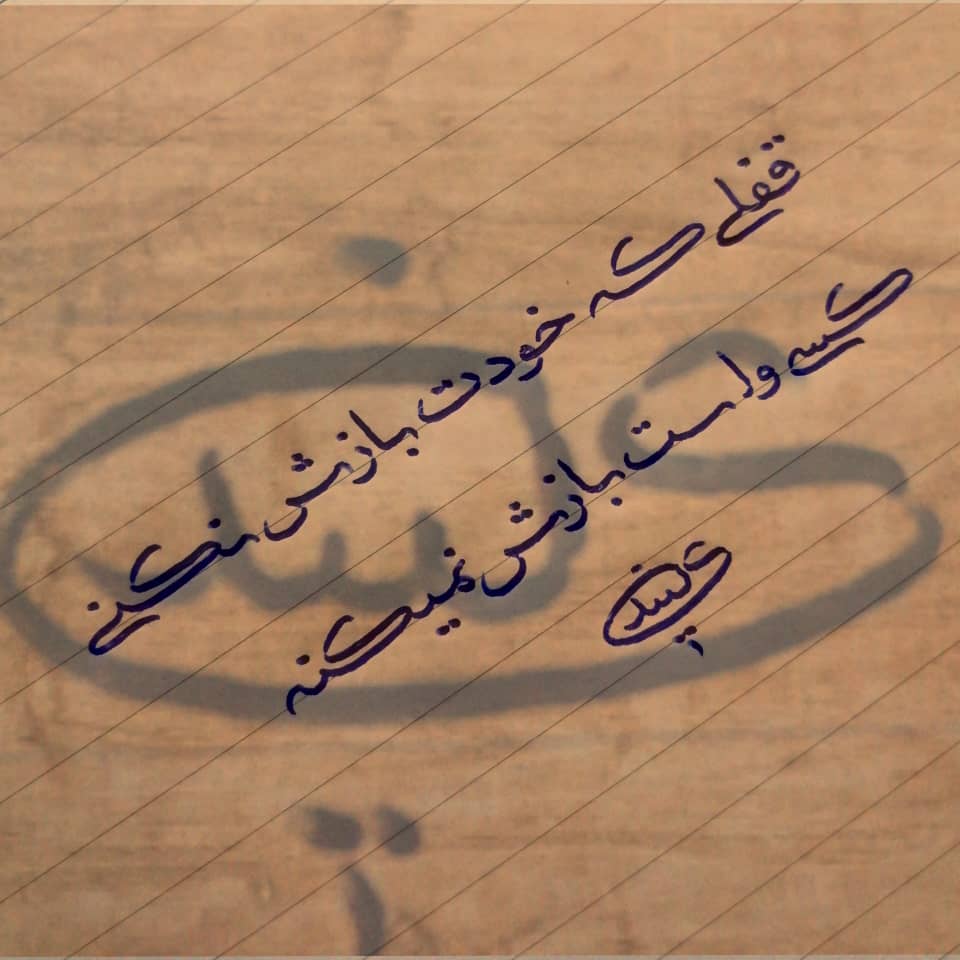 قفلی که خودت بازش نکنی
کسی واست بازش نمیکنه